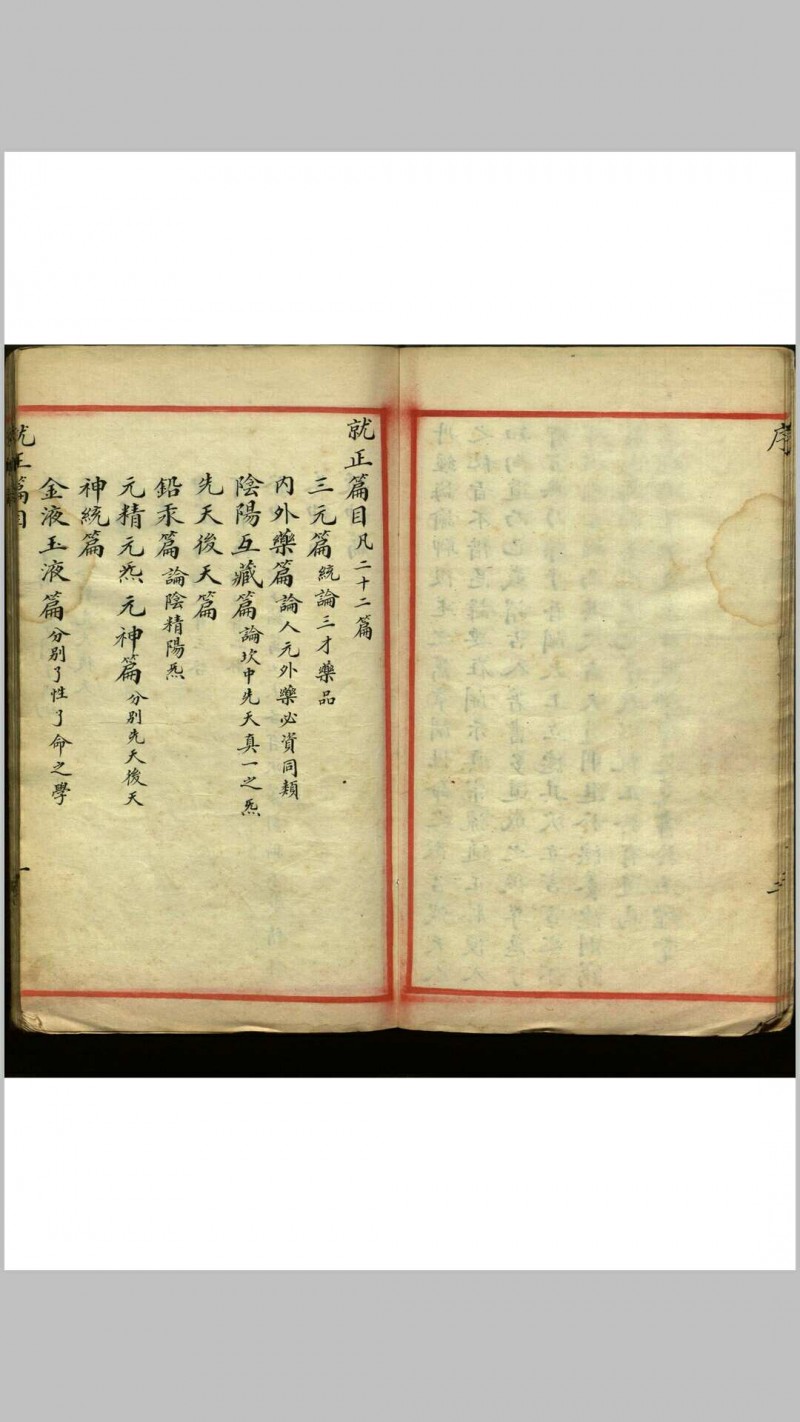 序
二
就正篇目凡二十二篇
三元篇統論三才藥品
內外藥篇論人元外藥必資同類
陰陽互藏篇論坎中先天真一之炁
先天後天篇
鉛汞篇論陰精陽炁
元精元炁元神篇分別先天後天
神統篇
金液玉液篇分別了性了命之學
就正篇目
一